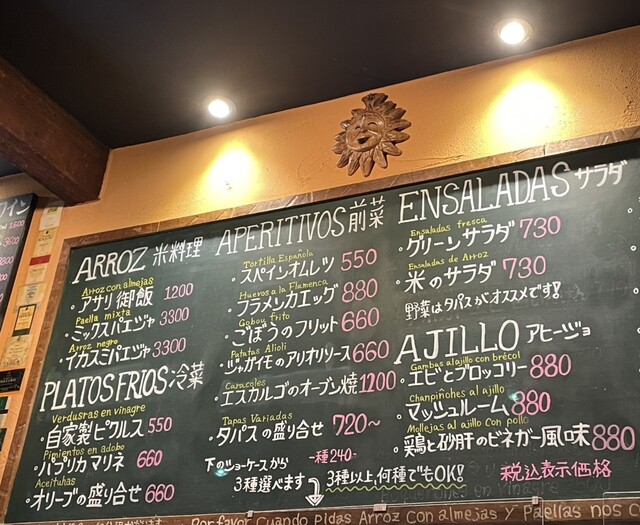 ARROZ 米料理
Arroz con almejas
・アサリ御飯 1200
Paella mixta
・ミックスパエジャ 3300
Arroz negro
・イカスミパエジャ 3300
PLATOS FRIOS・冷菜
Verdusras en vinagre
・自家製ピクルス 550
Pimientos en adobo
・パプリカマリネ 660
Aceituhas
・オリーブの盛り合せ 660
APERITIVOS 前菜
Tortilla Española
・スペインオムレツ 550
Huevos a la Flamenca
・フラメンカエッグ 880
Goboy frito
・ごぼうのフリット 660
Patatas Alioli
・ジャガイモのアリオリソース 660
Caracoles
・エスカルゴのオーブン焼 1200
Tapas Variadas
・タパスの盛り合せ 720~
下のショーケースから
一種240-
3種選べます
3種以上、何種でもOK!
ENSALADAS サラダ
Ensaladas fresca
・グリーンサラダ 730
Ensaladas de Arroz
・米のサラダ 730
野菜はタパスがオススメです!
AJILLO アヒージョ
Gambas alajillo con brécol
・エビとブロッコリー 880
Champiñohes al ajillo
・マッシュルーム 880
Mollejas al ajillo con pollo
・鶏と砂肝のビネガー風味 880
税込表示価格
Por favor Cuando pidas Arroz Con almejas y Paellas nos